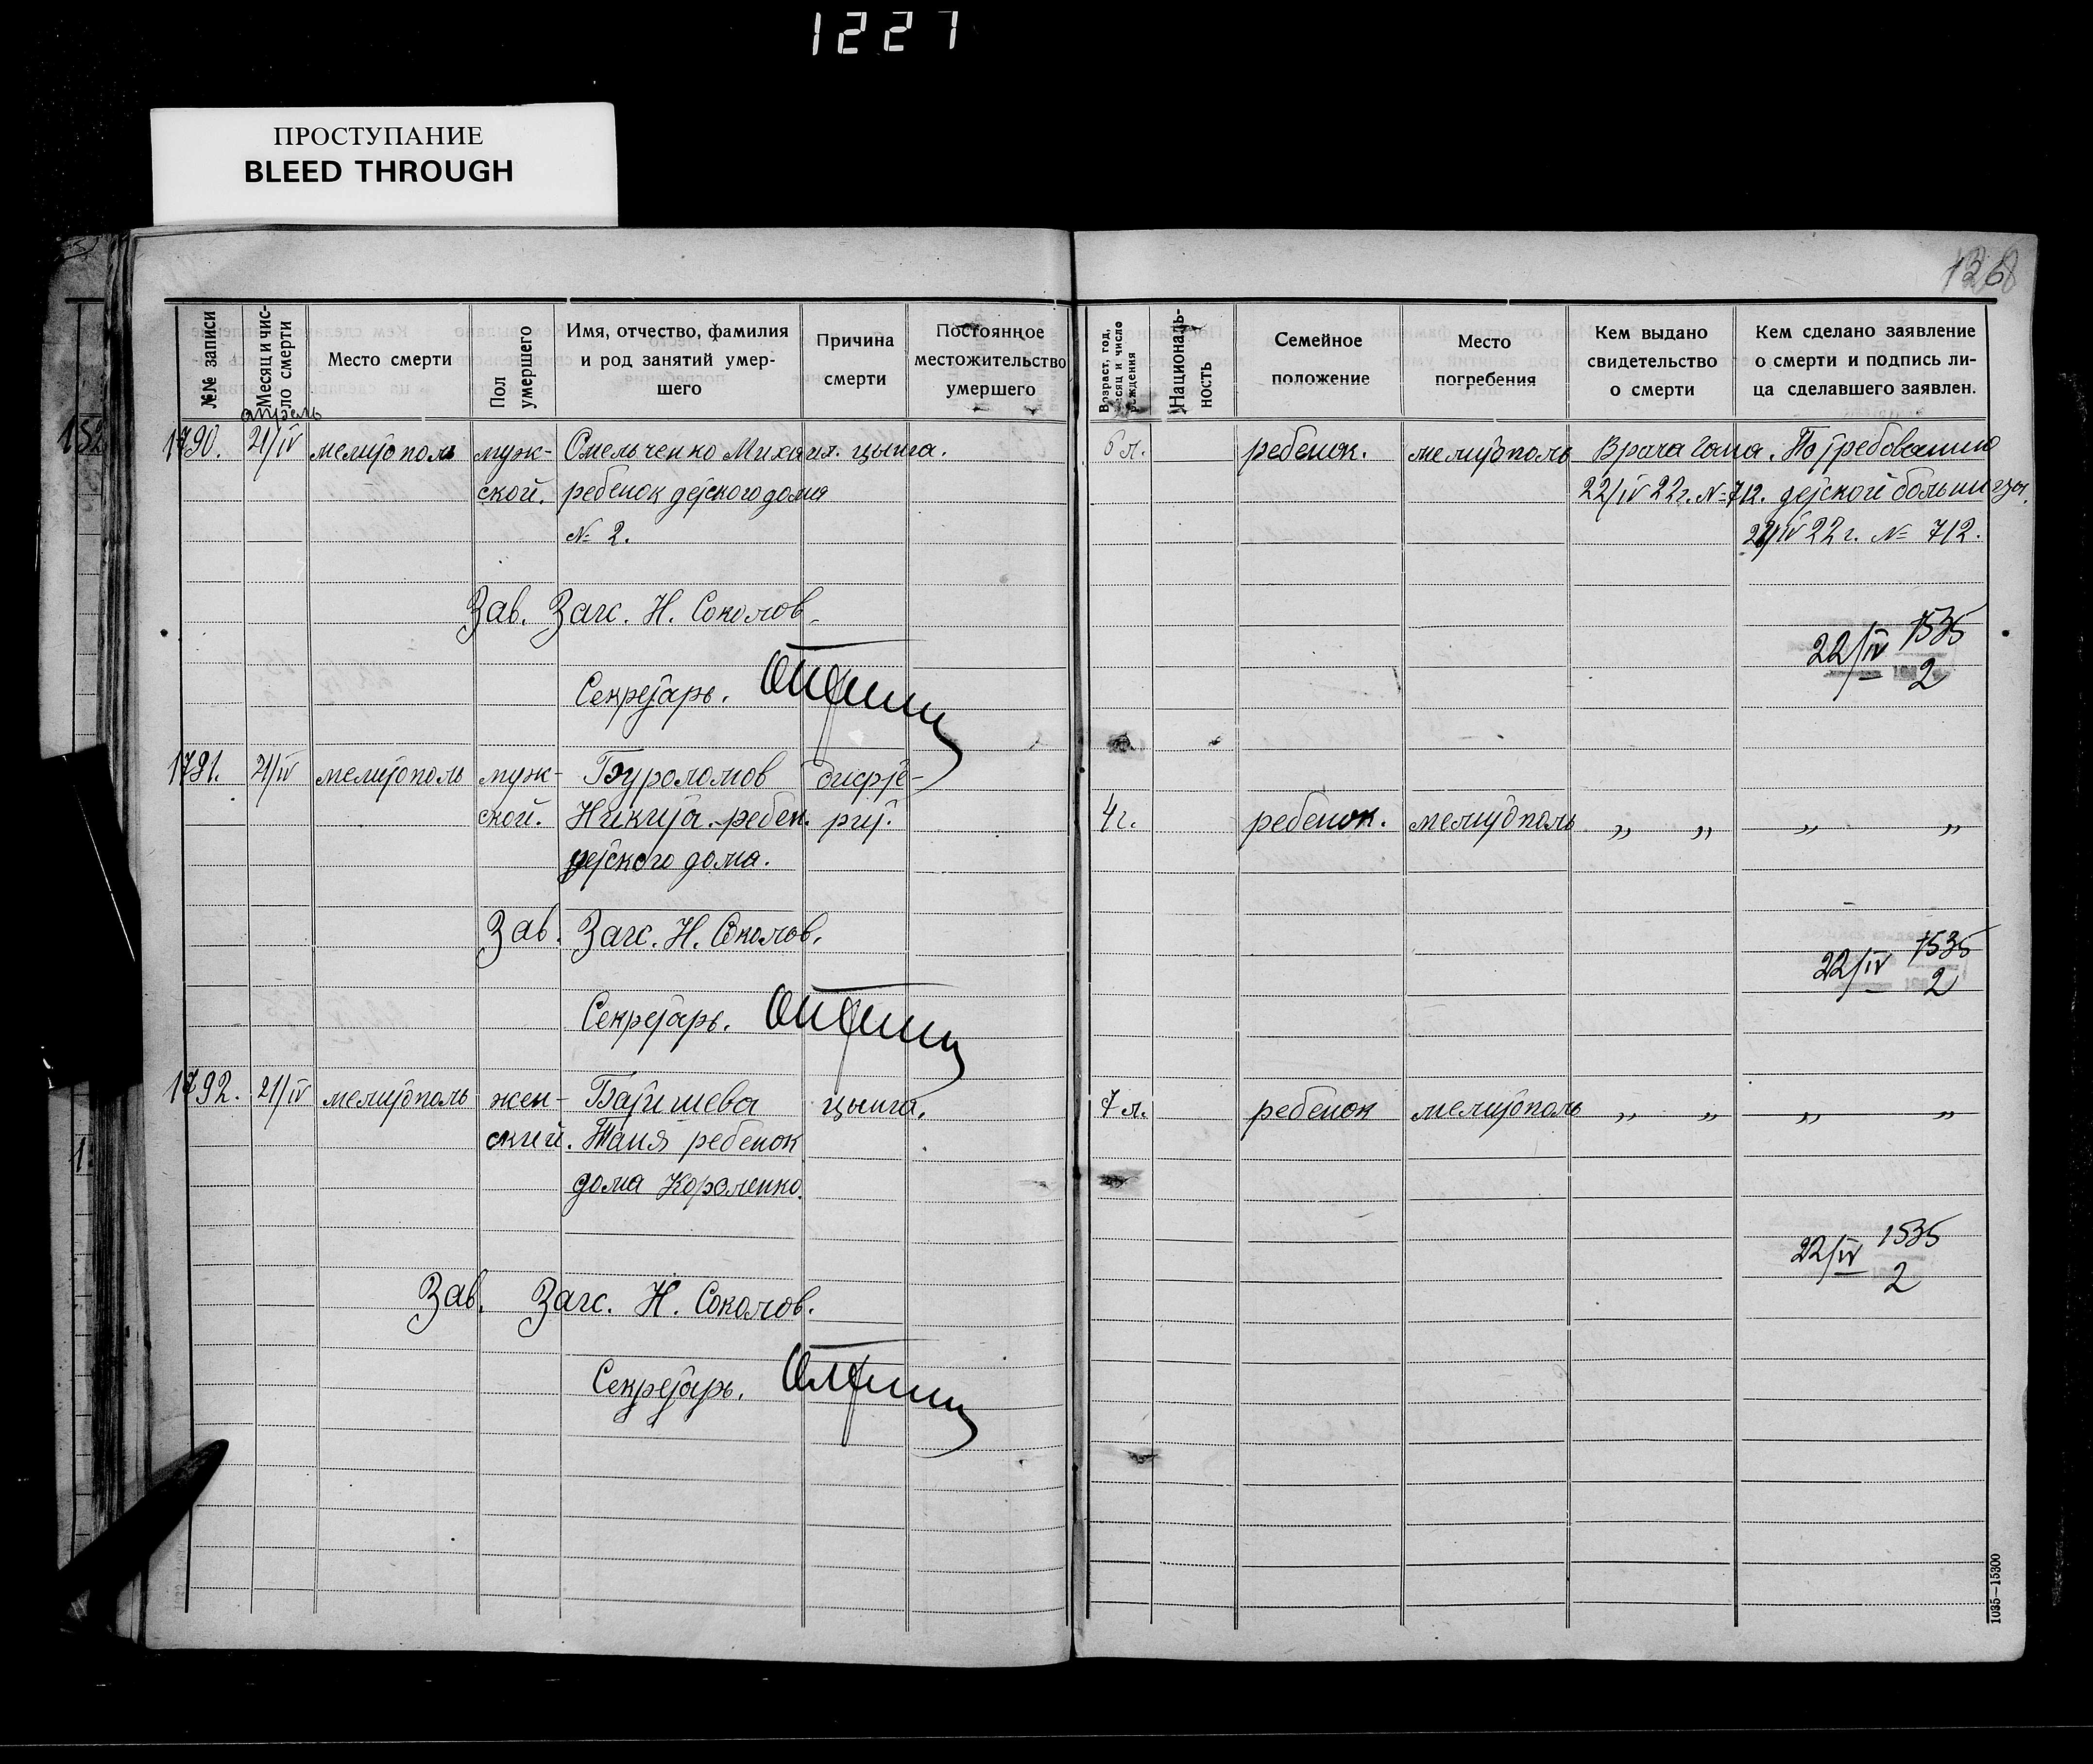 1227
ПРОСТУПАНИЕ
BLEED THROUGH
1368
№№ записи
Месяц и чис-
ло смерти
Место смерти
Пол
умершего
Имя, отчество, фамилия
и род занятий умер-
шего
Причина
смерти
Постоянное
местожительство
умершего
Возраст, год,
месяц и число
рождения
Националь-
ность
Семейное
положение
Место
погребения
Кем выдано
свидетельство
о смерти
Кем сделано заявление
о смерти и подпись ли-
ца сделавшего заявлен.
апрель
1790. 21/IV мелитополь муж- Омельченко Михаил. цынга. 6 л. ребенок. мелитополь Врача По требованию
ской. ребенок детского дома 22/IV 22г. №712. детской больницы.
№ 2. 22/IV 22 г. № 712.
Зав. Загс. Н. Соколов.
22/IV 1535
2
Секретарь.
1791. 21/IV мелитополь муж- Буроломов дифте-
ской. Никита. ребен. рит. 4г. ребенок. мелитополь „ „ „ „
детского дома.
Зав. Загс. Н. Соколов.
22/IV 1535
2
Секретарь.
1792. 21/IV мелитополь жен- Батищева цынга. 7 л. ребенок мелитополь „ „ „ „
ский. Таня ребенок
дома Короленко.
22/IV 1535
2
Зав. Загс. Н. Соколов.
Секретарь.
1035—15300